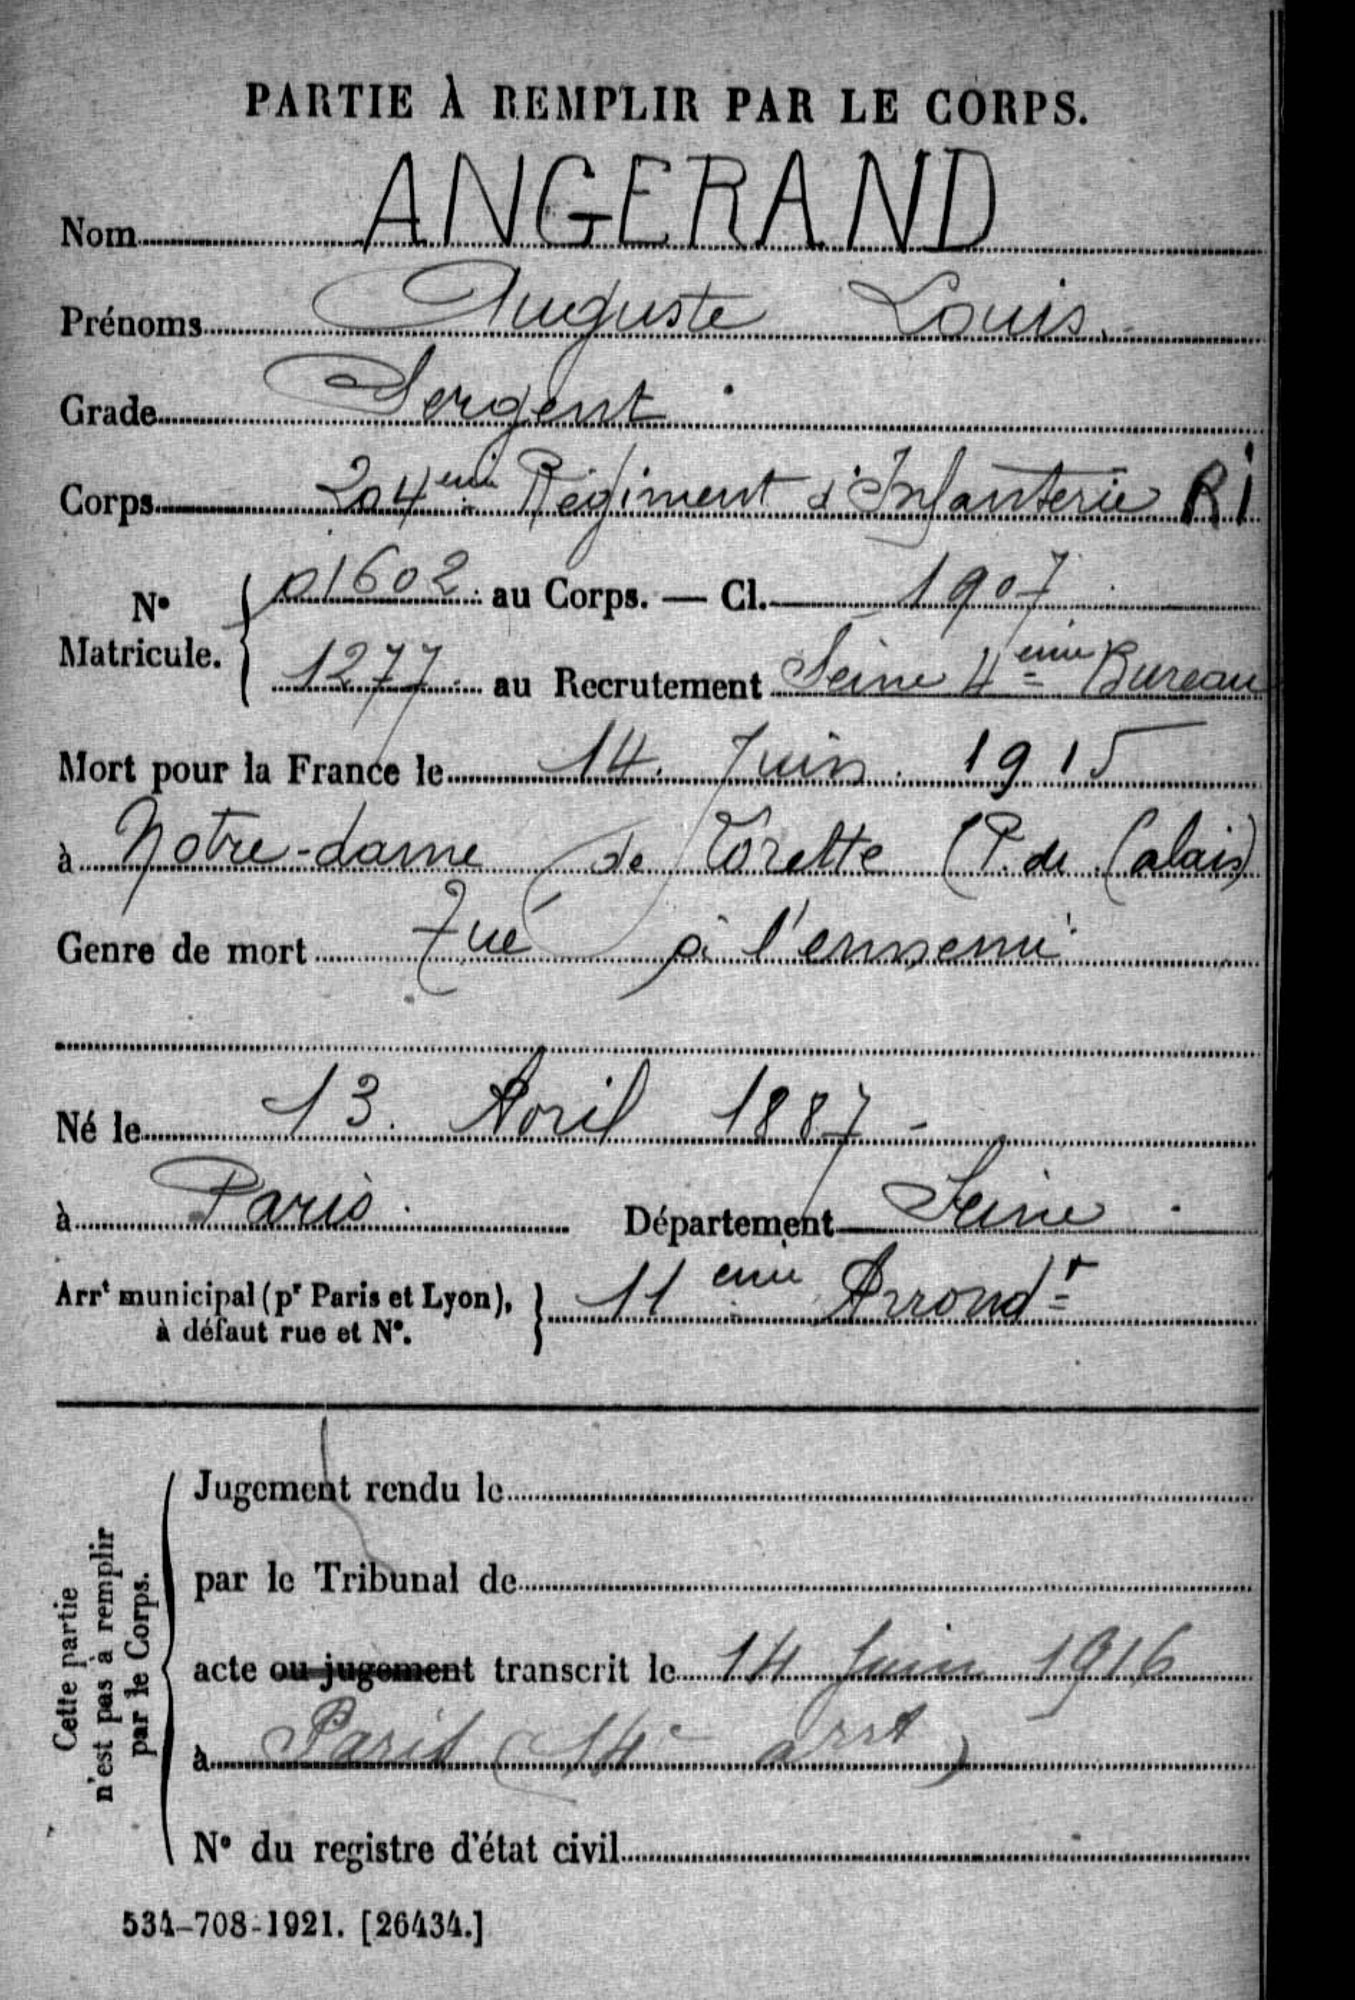 PARTIE À REMPLIR PAR LE CORPS.
Nom ANGERAND
Prénoms Auguste Louis
Grade Sergent
Corps 204eme Régiment d'Infanterie RI
N° Matricule. { 01602 au Corps. — Cl. 1907
1277 au Recrutement Seine 4eme Bureau
Mort pour la France le 14 Juin 1915
à Notre-dame de Lorette (P. de Calais)
Genre de mort Tué à l'ennemi
Né le 13 Avril 1887
à Paris Département Seine
Arrt municipal (pr Paris et Lyon), à défaut rue et N°. } 11eme Arrondt
Cette partie n'est pas à remplir par le Corps.
Jugement rendu le
par le Tribunal de
acte ou jugement transcrit le 14 Juin 1916
à Paris (14e arrt)
N° du registre d'état civil
534-708-1921. [26434.]